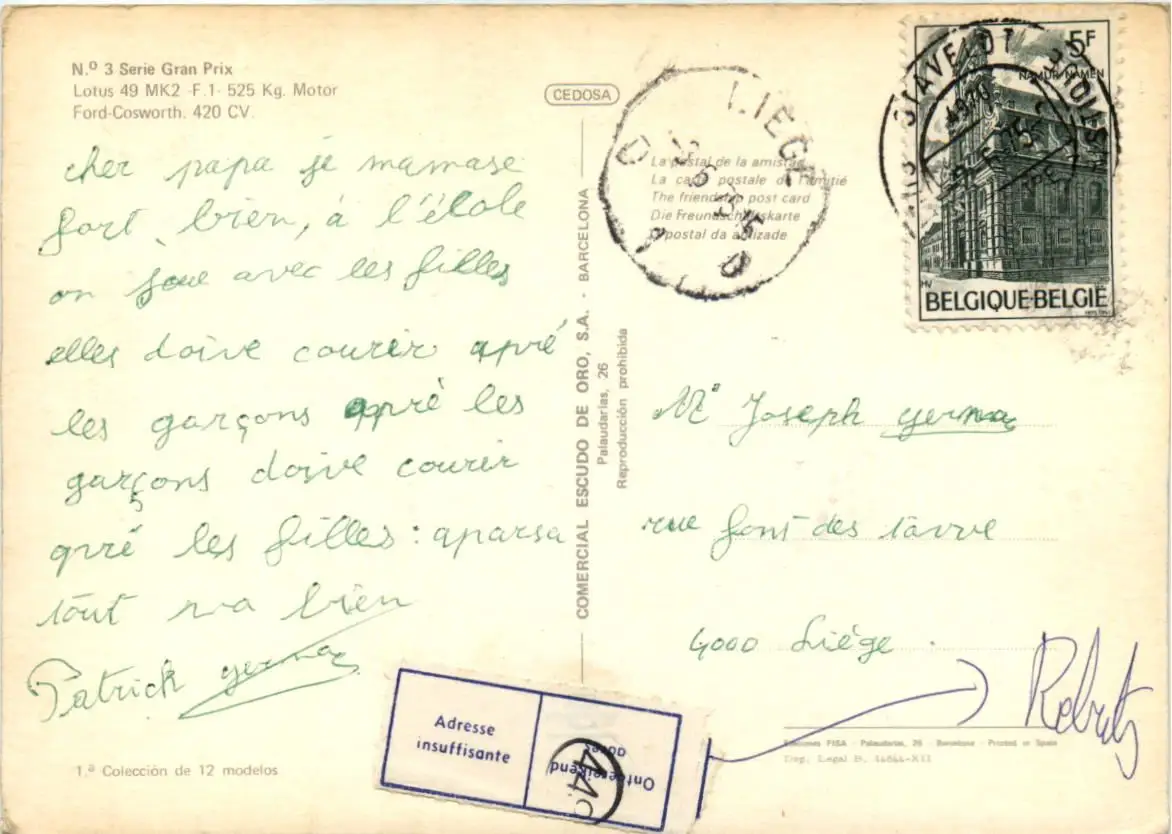 N.º 3 Serie Gran Prix
Lotus 49 MK2 -F.1- 525 Kg. Motor
Ford-Cosworth. 420 CV.
cher papa je mamase
fort bien, à l'école
on joue avec les filles
elles doive courir apré
les garçons apré les
garçons doive courir
apré les filles: aparsa
tout va bien
Patrick
1.ª Colección de 12 modelos
CEDOSA
COMERCIAL ESCUDO DE ORO, S.A. - BARCELONA
Palaudarias, 26
Reproducción prohibida
La postal de la amistad
La carte postale de l'amitié
The friendship post card
Die Freundschaftskarte
O postal da amizade
LIEGE
STAVELOT
4970
5F
NAMUR-NAMEN
BELGIQUE-BELGIË
HV
Mr Joseph
rue font des tavve
4000 Liége
Adresse
insuffisante
Ontoereikend
adres
Ediciones FISA - Palaudarias, 26 - Barcelona - Printed in Spain
Dep. Legal B.